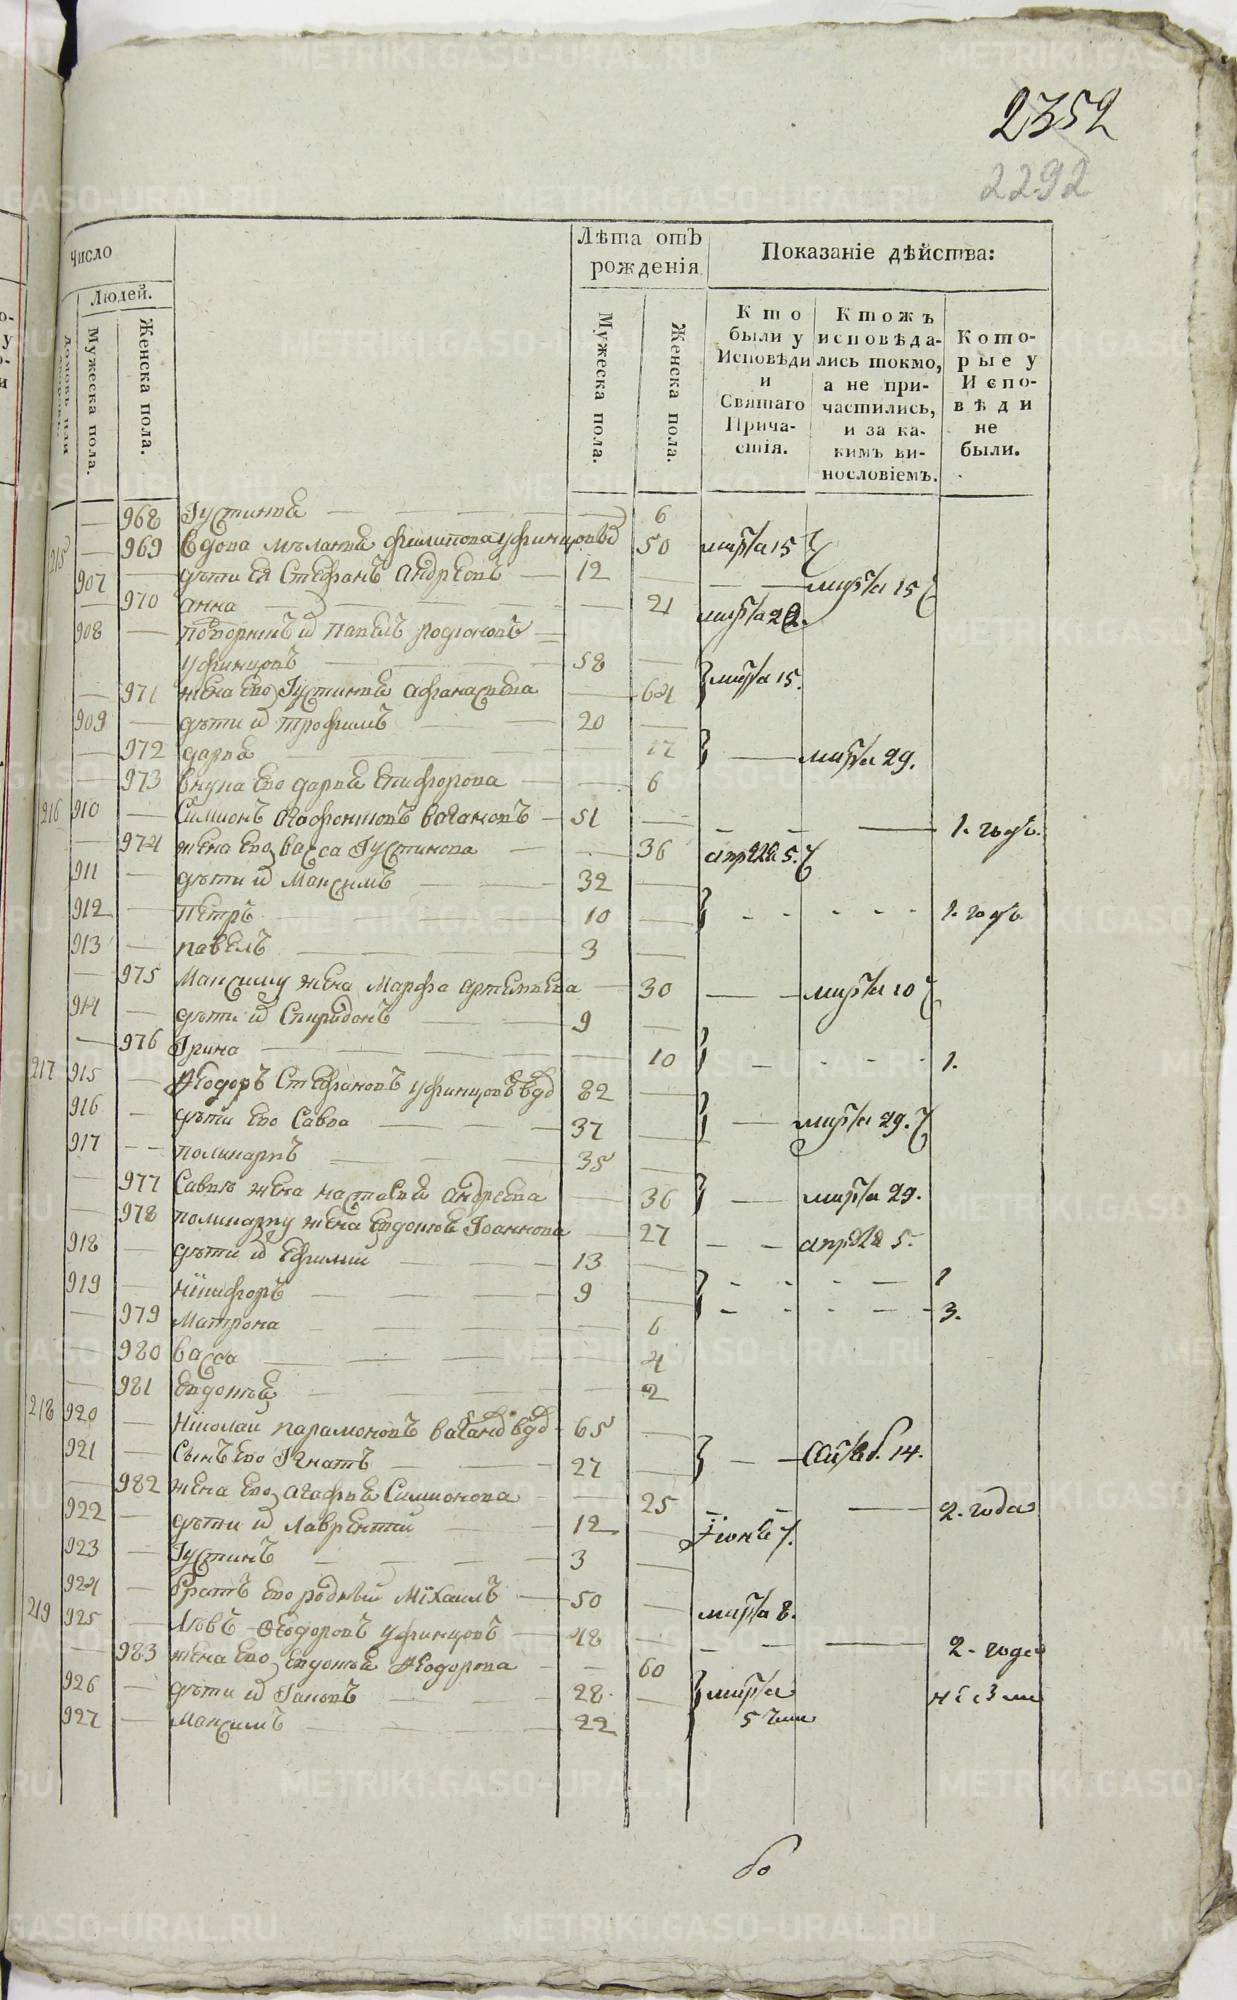 2352
2292
Число
Лѣта отъ рожденія
Показаніе дѣйства:
Людей.
Домовъ или
Мужеска пола.
Женска пола.
Мужеска пола.
Женска пола.
Кто были у Исповѣди и Святаго Прича- стія.
Ктожъ исповѣда- лись токмо, а не при- частились, и за ка- кимъ ви- нословіемъ.
Кото- рые у Испо- вѣди не были.
968 Іустинія 6
215 969 вдова мѣланія филипова уфинцовыд 50 марта 15
907 дѣти ея Стефанъ андреовъ 12 марта 15
970 анна 21 марта 22.
908 поворникъ Павелъ родіоновъ
уфинцовъ 58
971 жена его Іустинія афанасіева 64 марта 15.
909 дѣти и трофимъ 20
972 дарія 17 марта 29.
973 внука его дарія никифорова 6
216 910 Симионъ агафонтовъ вагановъ 51 1. годъ.
974 жена его васса Іустинова 36 апрѣля 5.
911 дѣти и Максимъ 32
912 петръ 10 1. годъ
913 павелъ 3
975 Максиму жена Марфа артемиева 30 марта 10
914 дѣти и Спиридонъ 9
976 Ірина 10 1.
217 915 Ѳеодоръ Стефановъ уфинцовъ вдв 82
916 дѣти его Савва 37 марта 29.
917 полинарій 35
977 Саввы жена настасія андреева 36 марта 29.
978 полинарху жена Евдокія Іоаннова 27 апрѣля 5.
918 дѣти и Ефимий 13
919 никифоръ 9
979 Матрона 6 3.
980 васса 4
981 Евдокія 2
218 920 Николаи парамоновъ ваганов вдв 65
921 Сынъ его Игнатъ 27 14.
982 жена его агафія Симионова 25 2. года
922 дѣти и Лаврентий 12 Іюня 7.
923 Іустинъ 3
924 братъ его родный Михаилъ 50 марта 8.
219 925 Львъ Ѳеодоровъ уфинцовъ 48 2. года
983 жена его Евдокія Ѳеодорова 60
926 дѣти и Іаковъ 28 марта
927 Максимъ 22 5 чис
во
METRIKI.GASO-URAL.RU